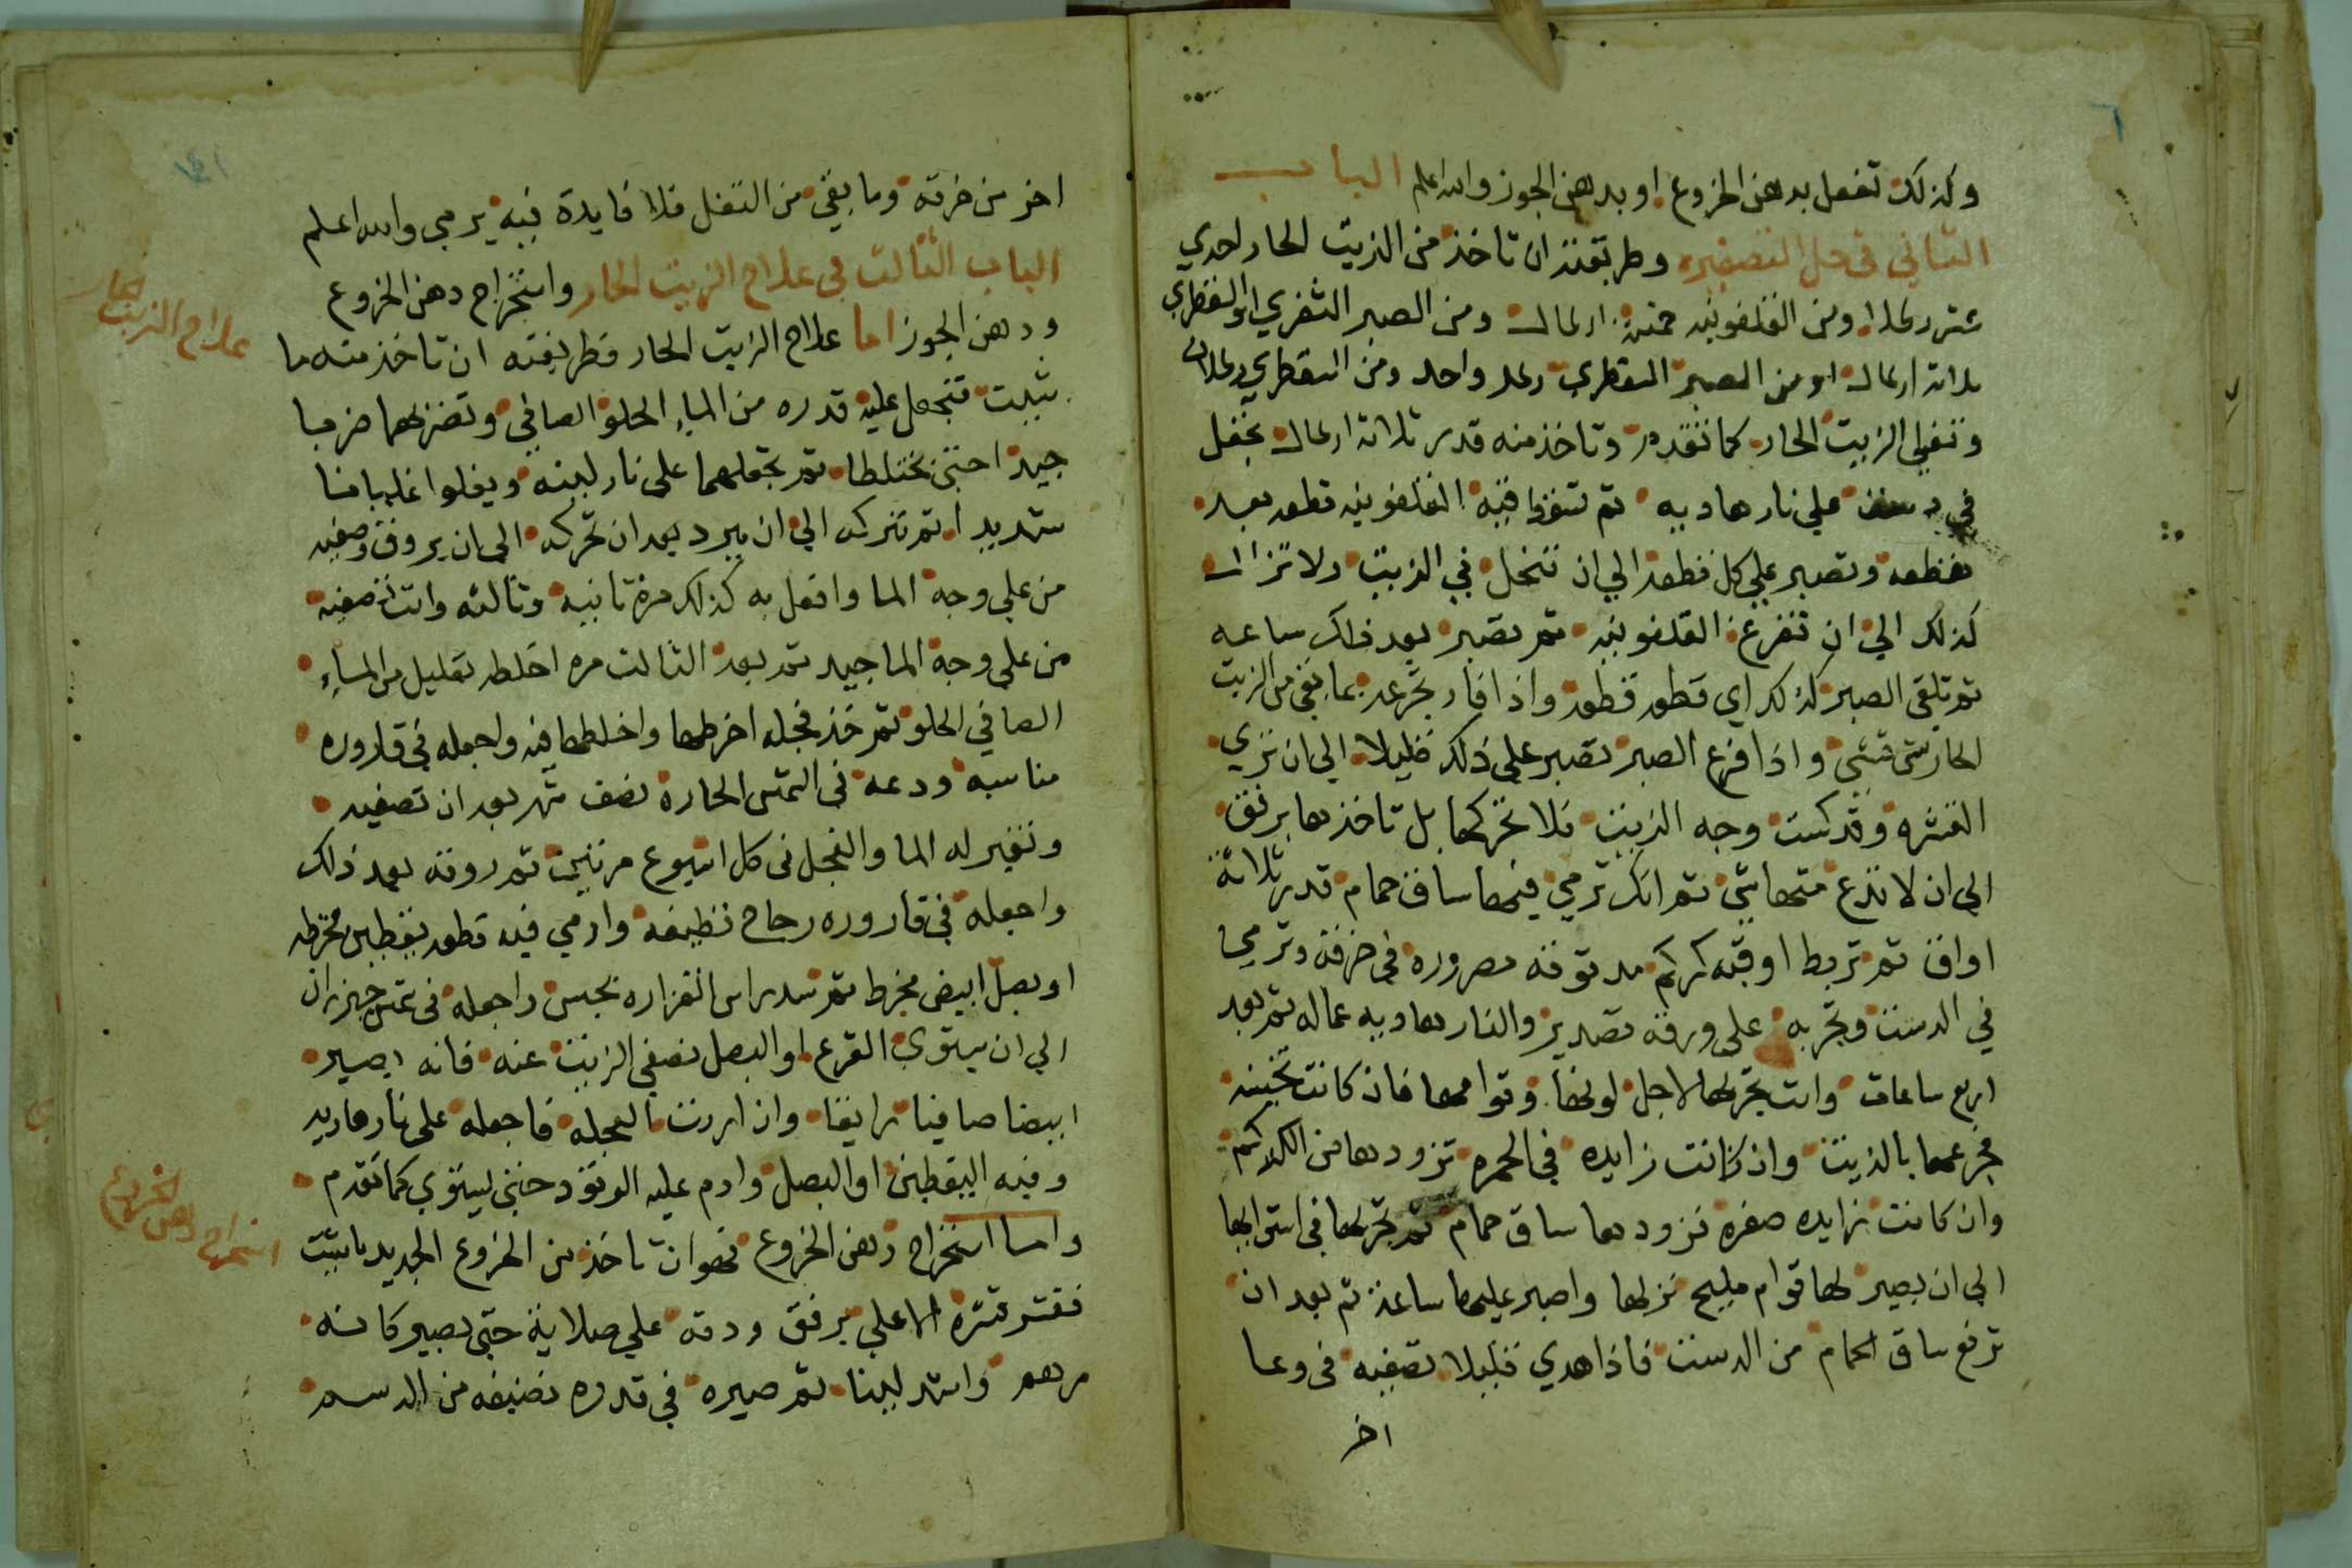 وكذلك تفعل بدهن الخروع او بدهن الجوز والله اعلم الباب
الثاني في حل التصفيره وطريقته ان تاخذ من الزيت الحار احدي
عشر رطلا ومن القلفونيه خمسة ارطال ومن الصبر الثغري او السقطري
ثلاثه ارطال او من الصبر السقطري رطل واحد ومن السقطري رطلان
وتغلي الزيت الحار كما تقدم وتاخذ منه قدر ثلاثة ارطال تجعل
في دست علي نار هاديه ثم تنزل فيه القلفونيه قطعه بعد
قطعه وتصبر علي كل قطعة الي ان تنحل في الزيت ولا تزال
كذلك الي ان تفرغ القلفونيه ثم تصبر بعد ذلك ساعه
ثم تلقي الصبر كذلك اي قطعه قطعة واذا فار تجرعه بما بقي من الزيت
الحار شي شي واذا فرغ الصبر تصبر علي ذلك قليلا الي ان تري
القشره وقد كست وجه الزيت فلا تحركها بل تاخذها برفق
الي ان لا تدع منها شي ثم انك ترمي فيها ساق حمام قدر ثلاثة
اواق ثم تربط اوقيه كركم مدقوقه مصروره في خرقه وترميها
في الدست وتجربه علي ورقه تصدير والنار هاديه عماله ثم بعد
اربع ساعات وانت تجربها لاجل لونها وقوامها فان كانت تخينه
تجرعها بالزيت وان كانت زايده في الحمره تزودها من الكركم
وان كانت زايده صفره تزودها ساق حمام ثم تجربها في استوايها
الي ان يصير لها قوام مليح نزلها واصبر عليها ساعة ثم بعد ان
ترفع ساق الحمام من الدست فاذا هدي قليلا تصفيه في وعا
اخر
اخر من خرقه وما بقي من التفل فلا فايدة فيه يرمي والله اعلم
الباب الثالث في علاج الزيت الحار واستخراج دهن الخروع
ودهن الجوز اما علاج الزيت الحار فطريقته ان تاخذ منه ما
شيت فتجعل عليه قدره من الماء الحلو الصافي وتضربهما ضربا
جيدا حتي يختلطا ثم تجعلهما علي نار لينه ويغلوا غليانا
شديدا ثم تتركه الي ان يبرد بعد ان تحركه الي ان يروق وصفيه
من علي وجه الما وافعل به كذلك مرة ثانيه وثالثه وانت تصفيه
من علي وجه الما جيد ثم بعد الثالث مره اخلطه بقليل من الماء
الصافي الحلو ثم خذ فجله اخرطها واخلطها فيه واجعله في قاروره
مناسبه ودعه في الشمس الحارة نصف شهر بعد ان تصفيه
وتغير له الما والفجل في كل اسبوع مرتين ثم روقه بعد ذلك
واجعله في قاروره زجاج نظيفه وارمي فيه قطعه يقطين مخرطه
او بصل ابيض مخرط ثم شد راس القزازه بجبس واجعله في شمس حزيران
الي ان يستوي القرع او البصل نصفي الزيت عنه فانه يصير
ابيضا صافيا رايقا وان اردت العجله فاجعله علي نار هاديه
وفيه اليقطين او البصل وادم عليه الوقود حتي يستوي كما تقدم
واما استخراج دهن الخروع فهو ان تاخذ من الخروع الجديد ما شيت
فقشر قشره الاعلي برفق ودقه علي صلاية حتي يصير كانه
مرهم واشد لينا ثم صيره في قدره نضيفه من الدسم
علاج الزيت الحار
استخراج دهن الخروع